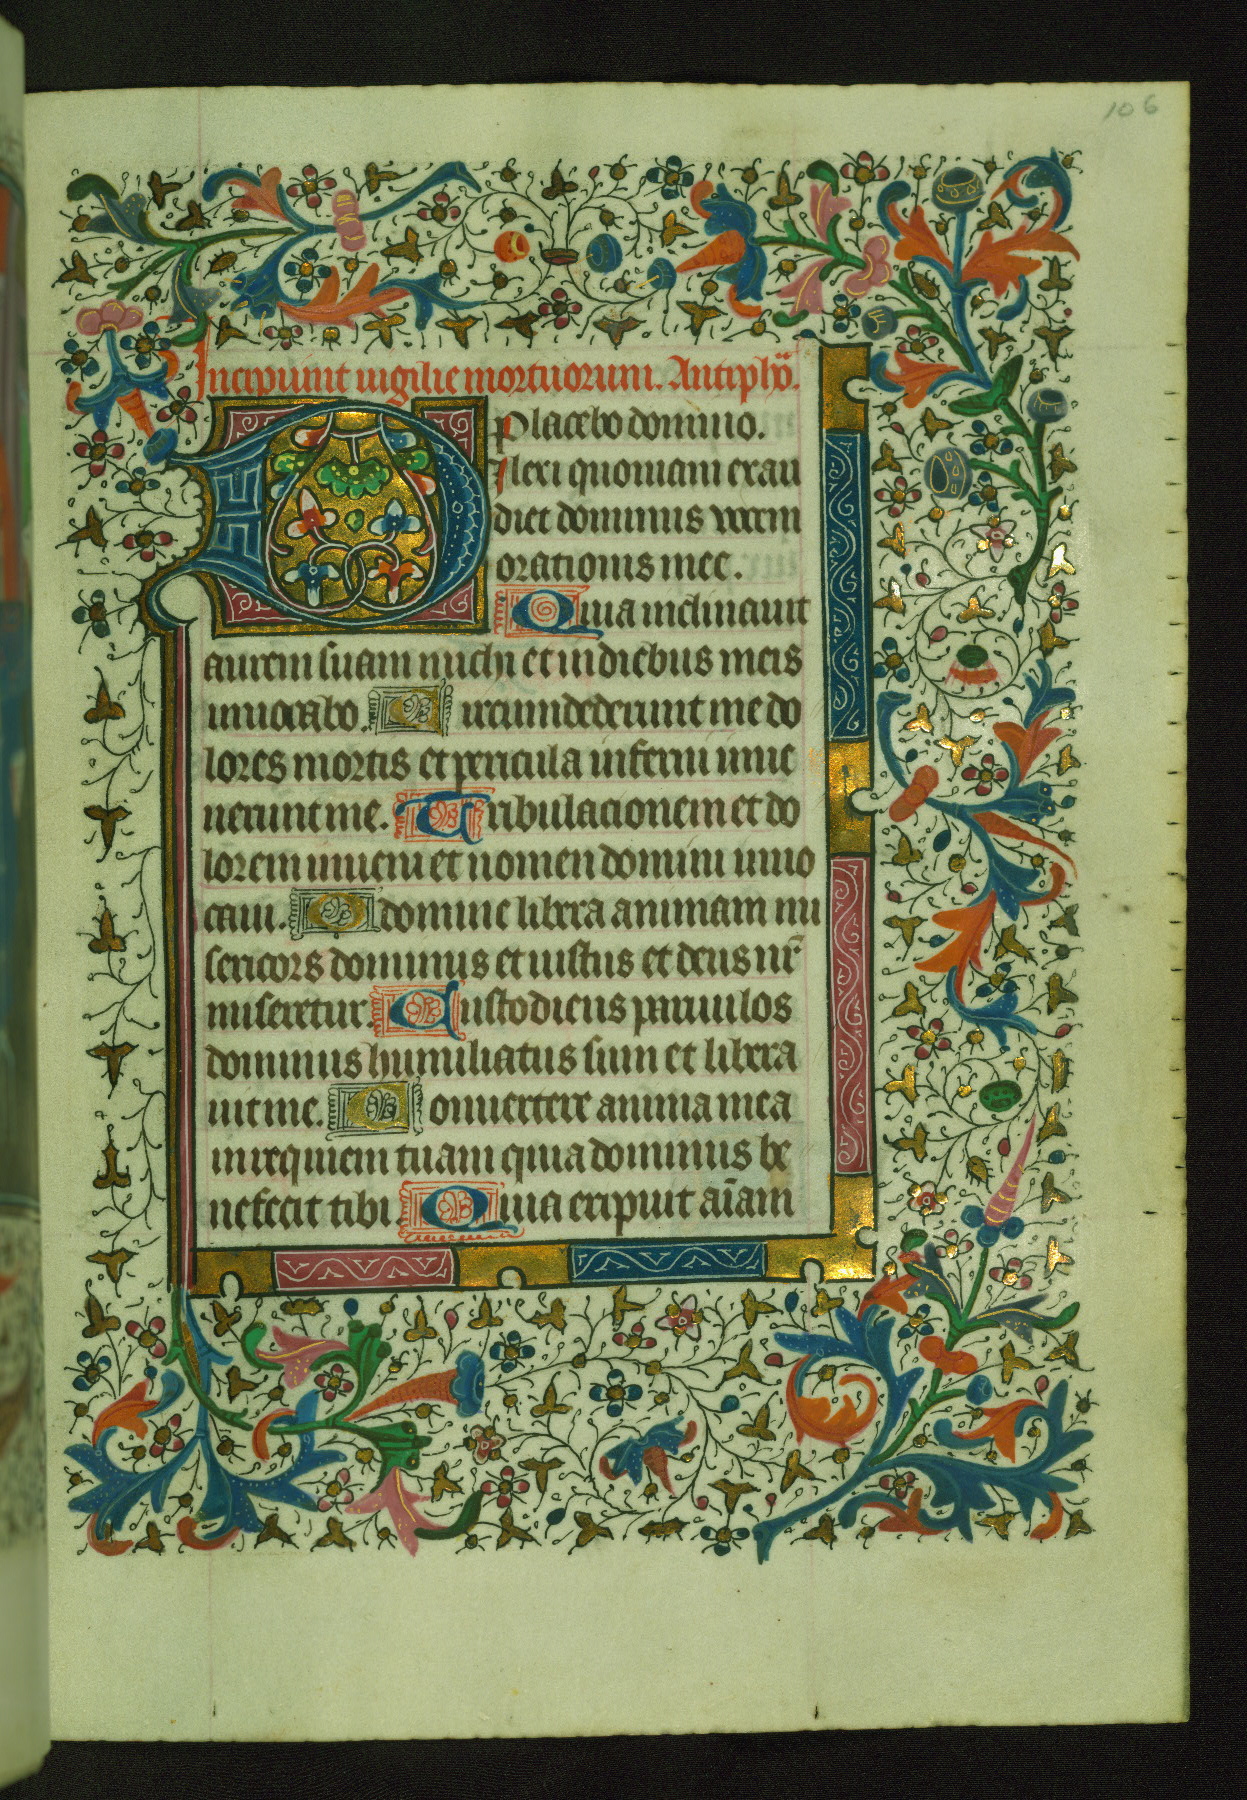 106
Incipiunt uigilie mortuorum. Antiphō.
Placebo domino.
Dilexi quoniam exau
diet dominus vocem
orationis mee.
Quia inclinauit
aurem suam michi et in diebus meis
inuocabo. Circumdederunt me do
lores mortis et pericula inferni inue
nerunt me. Tribulacionem et do
lorem inueni et nomen domini inuo
caui. O domine libera animam mi
sericors dominus et iustus et deus nr̄
miseretur. Custodiens paruulos
dominus humiliatus sum et libera
uit me. Conuertere anima mea
in requiem tuam quia dominus be
nefecit tibi Quia eripuit aīam